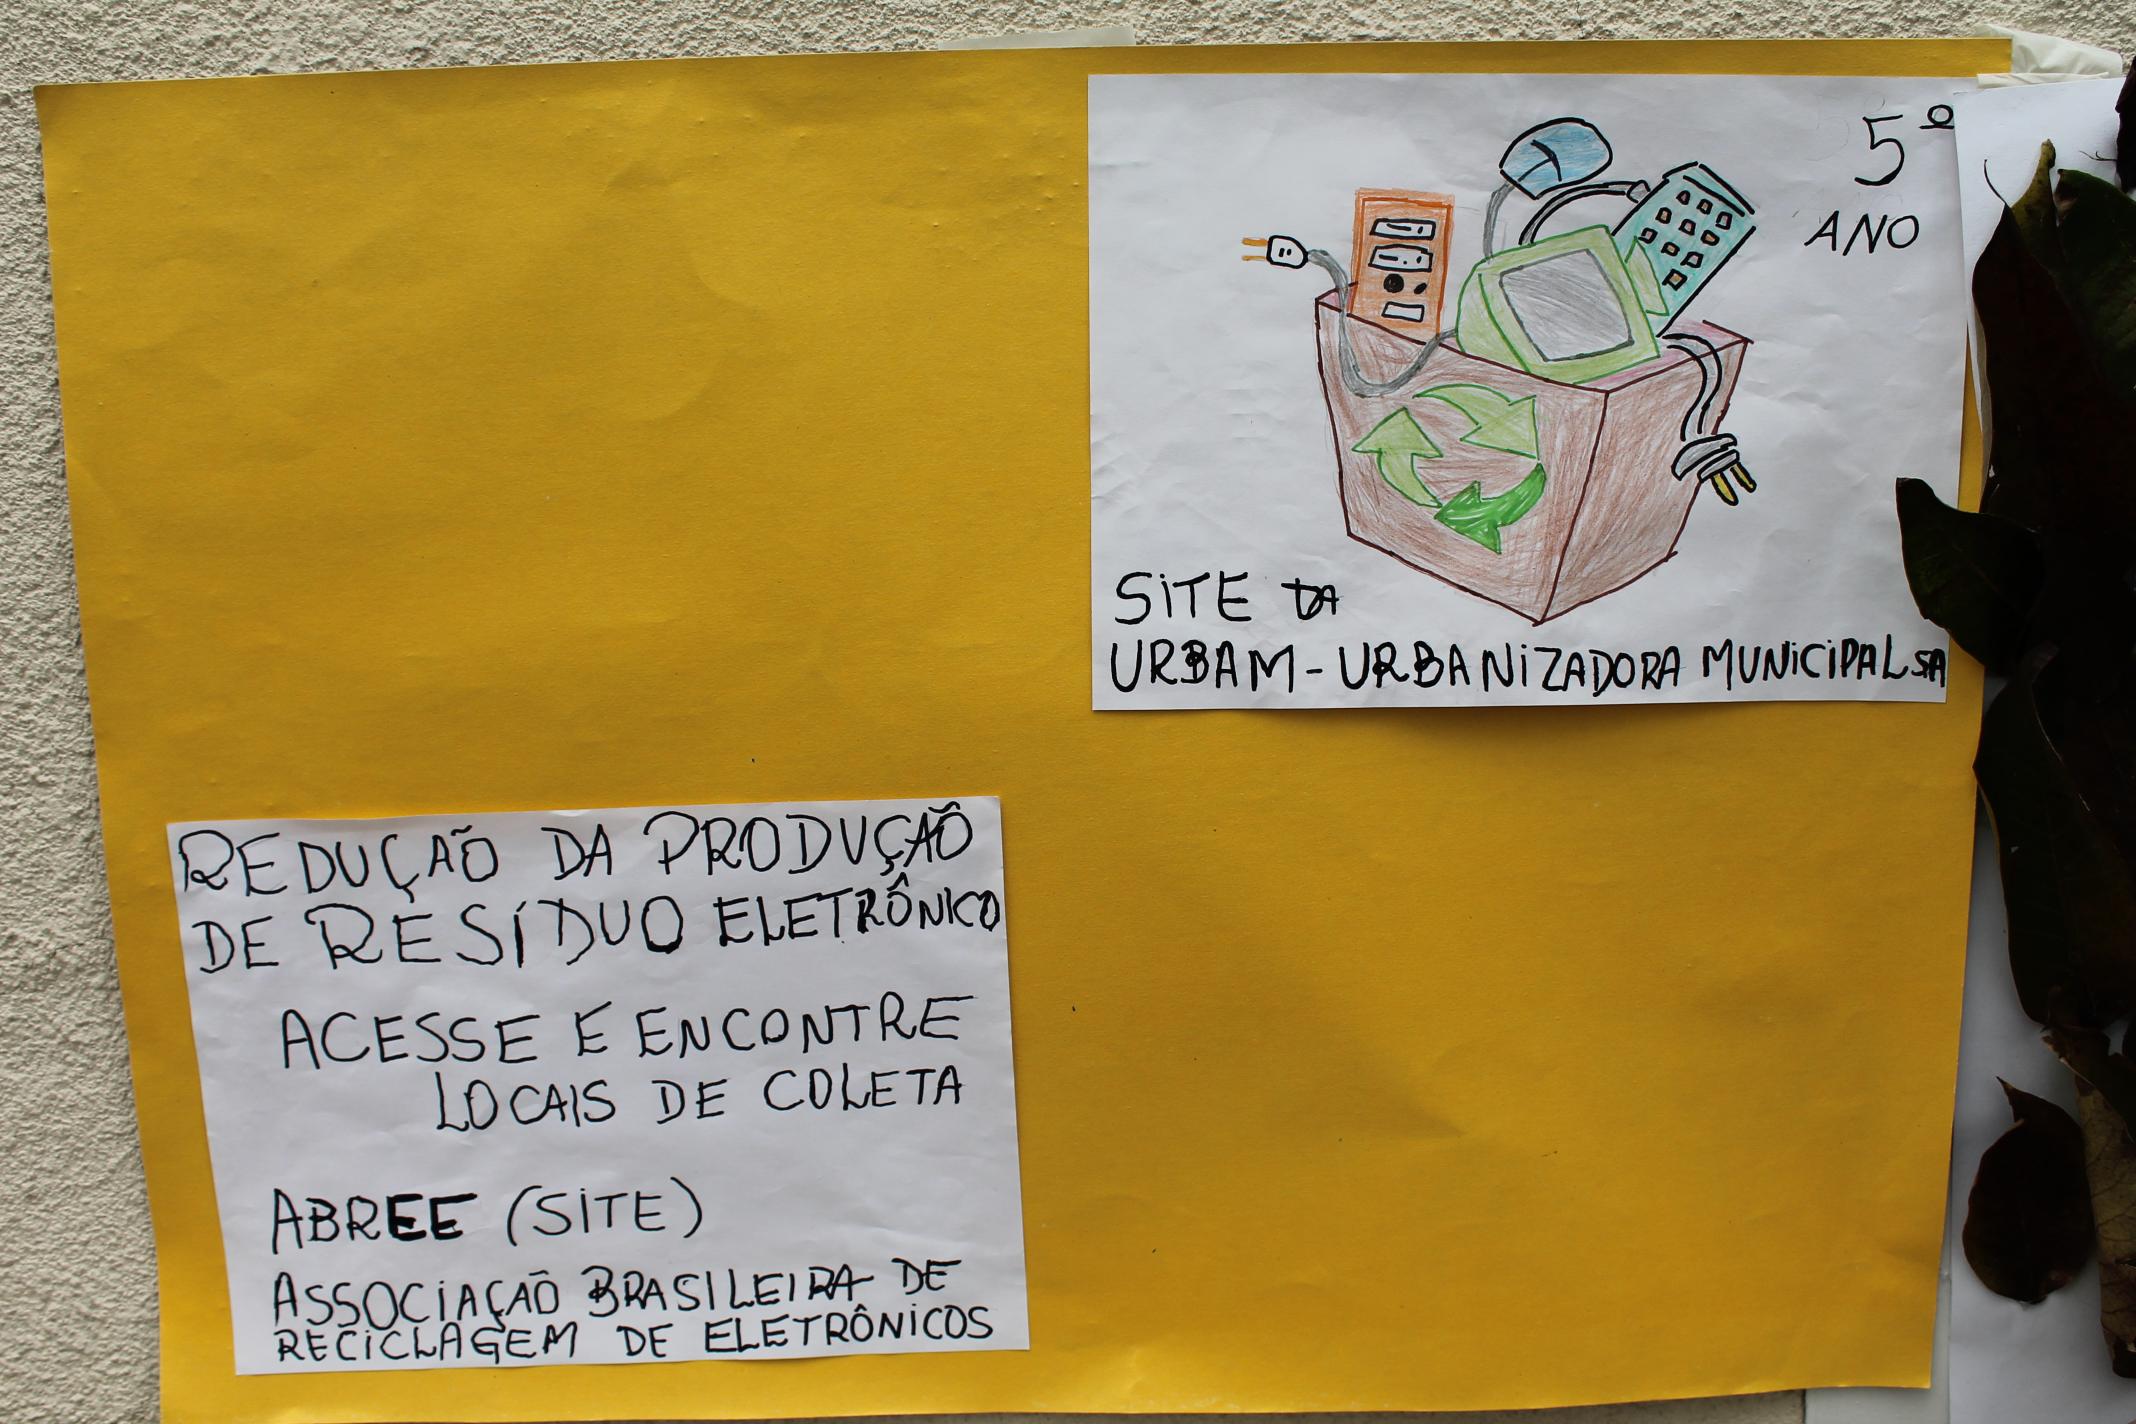 5º
ANO
SiTE DA
URBAM - URBANiZADORA MUNiCiPAL SA
REDUÇÃO DA PRODUÇÃO
DE RESÍDUO ELETRÔNICO
ACESSE E ENCONTRE
LOCAIS DE COLETA
ABREE (SiTE)
ASSOCiAÇÃO BRASILEIRA DE
RECiCLAGEM DE ELETRÔNiCOS